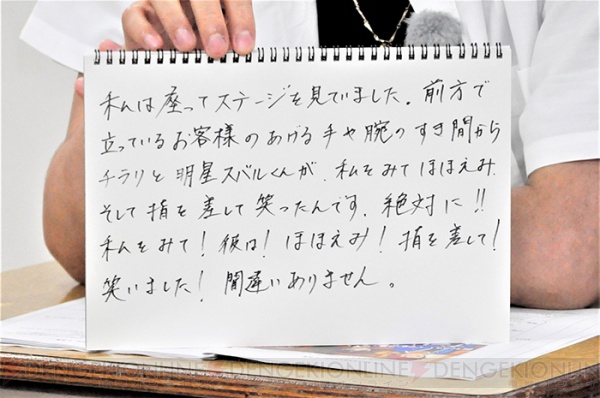 私は座ってステージを見ていました。前方で
立っているお客様のあげる手や腕のすき間から
チラリと明星スバルくんが、私をみてほほえみ、
そして指を差して笑ったんです、絶対に!!
私をみて!彼は!ほほえみ!指を差して!
笑いました!間違いありません。
DENGEKIONLINE DENGEKIONLINE DENGEKIONLINE